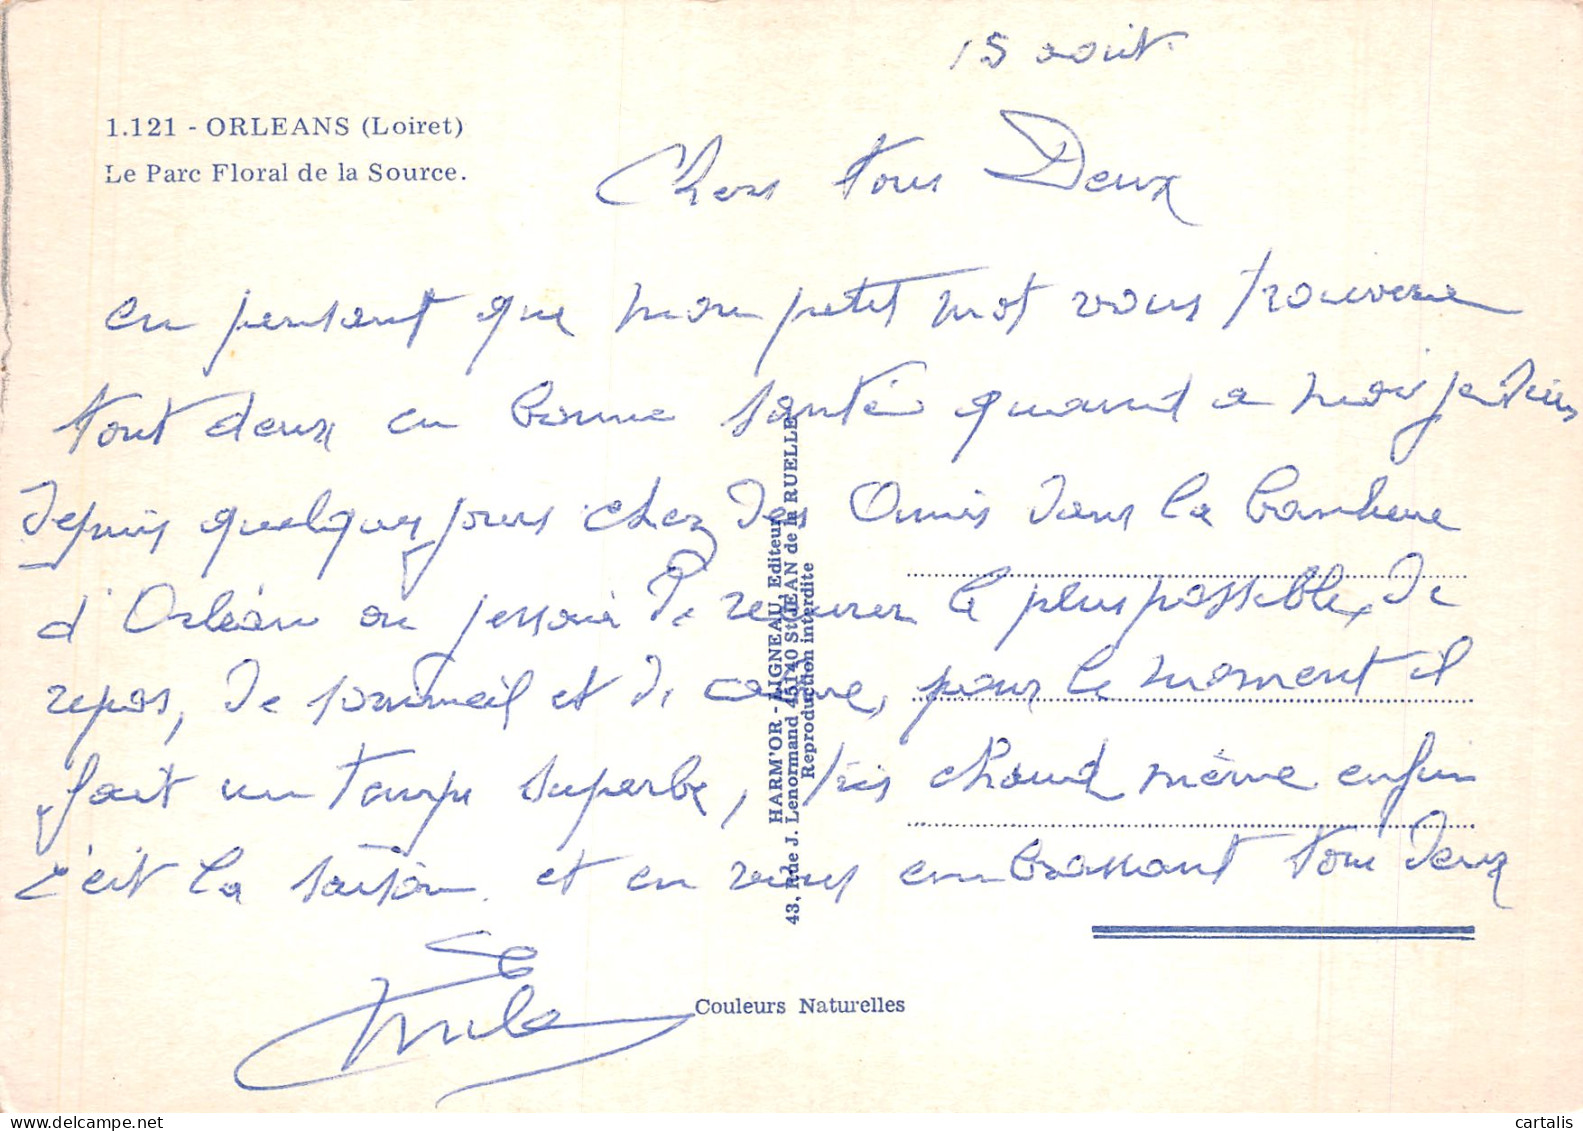 15 août
1.121 - ORLEANS (Loiret)
Le Parc Floral de la Source.
Chers tous Deux
en pensant que mon petit mot vous trouvera
tout deux en bonne santé quand a moi je suis
depuis quelques jours chez des Amis dans la banlieue
d'Orléan ou j'essaie de recuperer le plus possible, de
repos, de sommeil et de calme, pour le moment il
fait un temps superbe, très chaud même enfin
c'est la saison. et en vous embrassant tous deux
HARM'OR - LIGNEAU, Editeur
43, Rue J. Lenormand 45140 St JEAN de la RUELLE
Reproduction interdite
Couleurs Naturelles